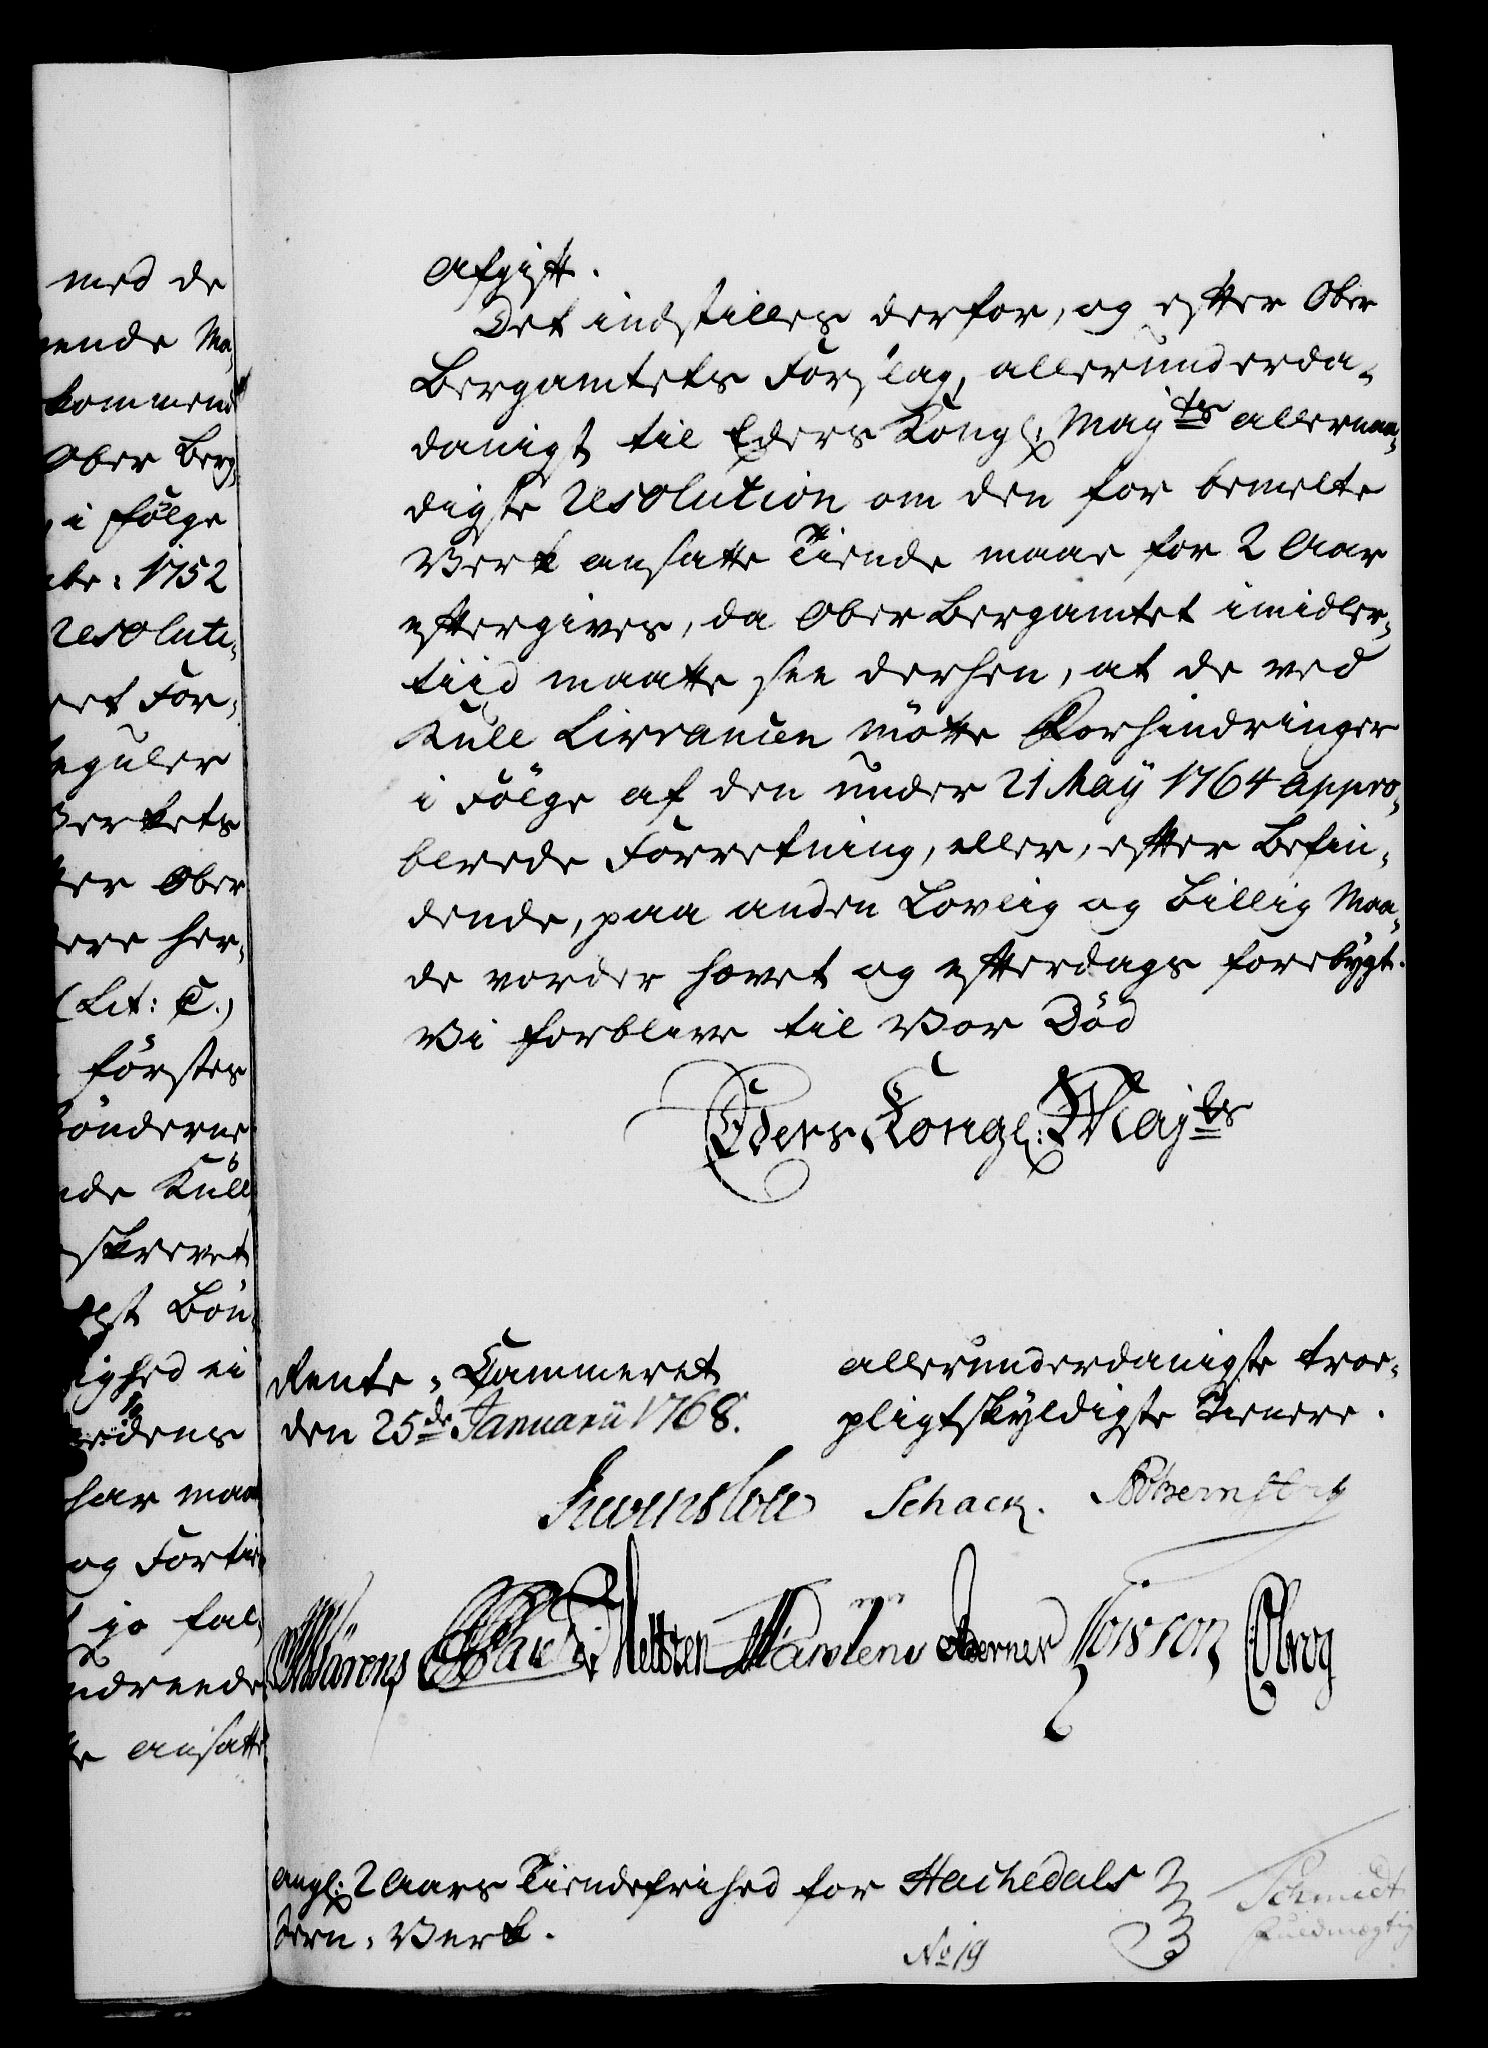 med de
ende Ma¸
kommend
Ober Berg¸
i følge
1752
resoluti¸
et For¸
reguler
Verkets
er Ober
ere her¸
(Lit: C.)
første
Bönderne
de Kull
skrevet
Bön¸
ighed ei
har man
og Fortie¸
jo fal¸
ansatte
Afgift.
Det indstilles derfor, og efter Ober
Bergamtets Forslag, allerunderda¸
danigst til Eders Kongl: May:ts allernaa¸
digste resolution om den for bemelte
Verk ansatte Tiende maae for 2 Aar
eftergives, da Ober Bergamtet imidler¸
tiid maatte see derhen, at de ved
Kull Lirrancen mötte Forhindringer
i Følge af den under 21 Maÿ 1764 appro¸
berede Forretning, eller, efter Befin¸
dende, paa anden Lovlig og billig Maa¸
de vorder hævet og efterdags forebygt.
Vi forblive til Vor Död
Eders Kongl: Maj:ts
Rente¸Cammeret
den 25de Januarii 1768.
allerunderdanigste troe¸
pligtskyldigste Tienere.
Schack.
Wärens Nelsten Martens Berner Hoisron
angl: 2 Aars Tiendefrihed for Hachedals
Jern¸Verk.
No 19
Schmidt
Fuldmegtig